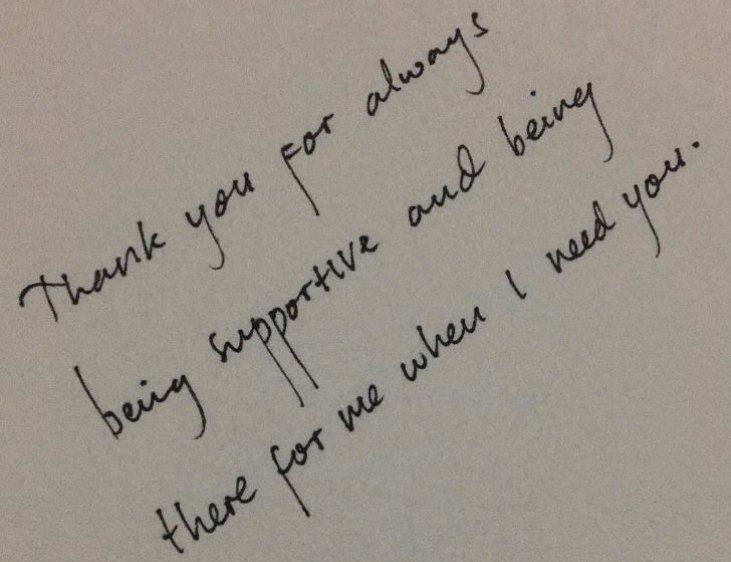 Thank you for always
being supportive and being
there for me when I need you.